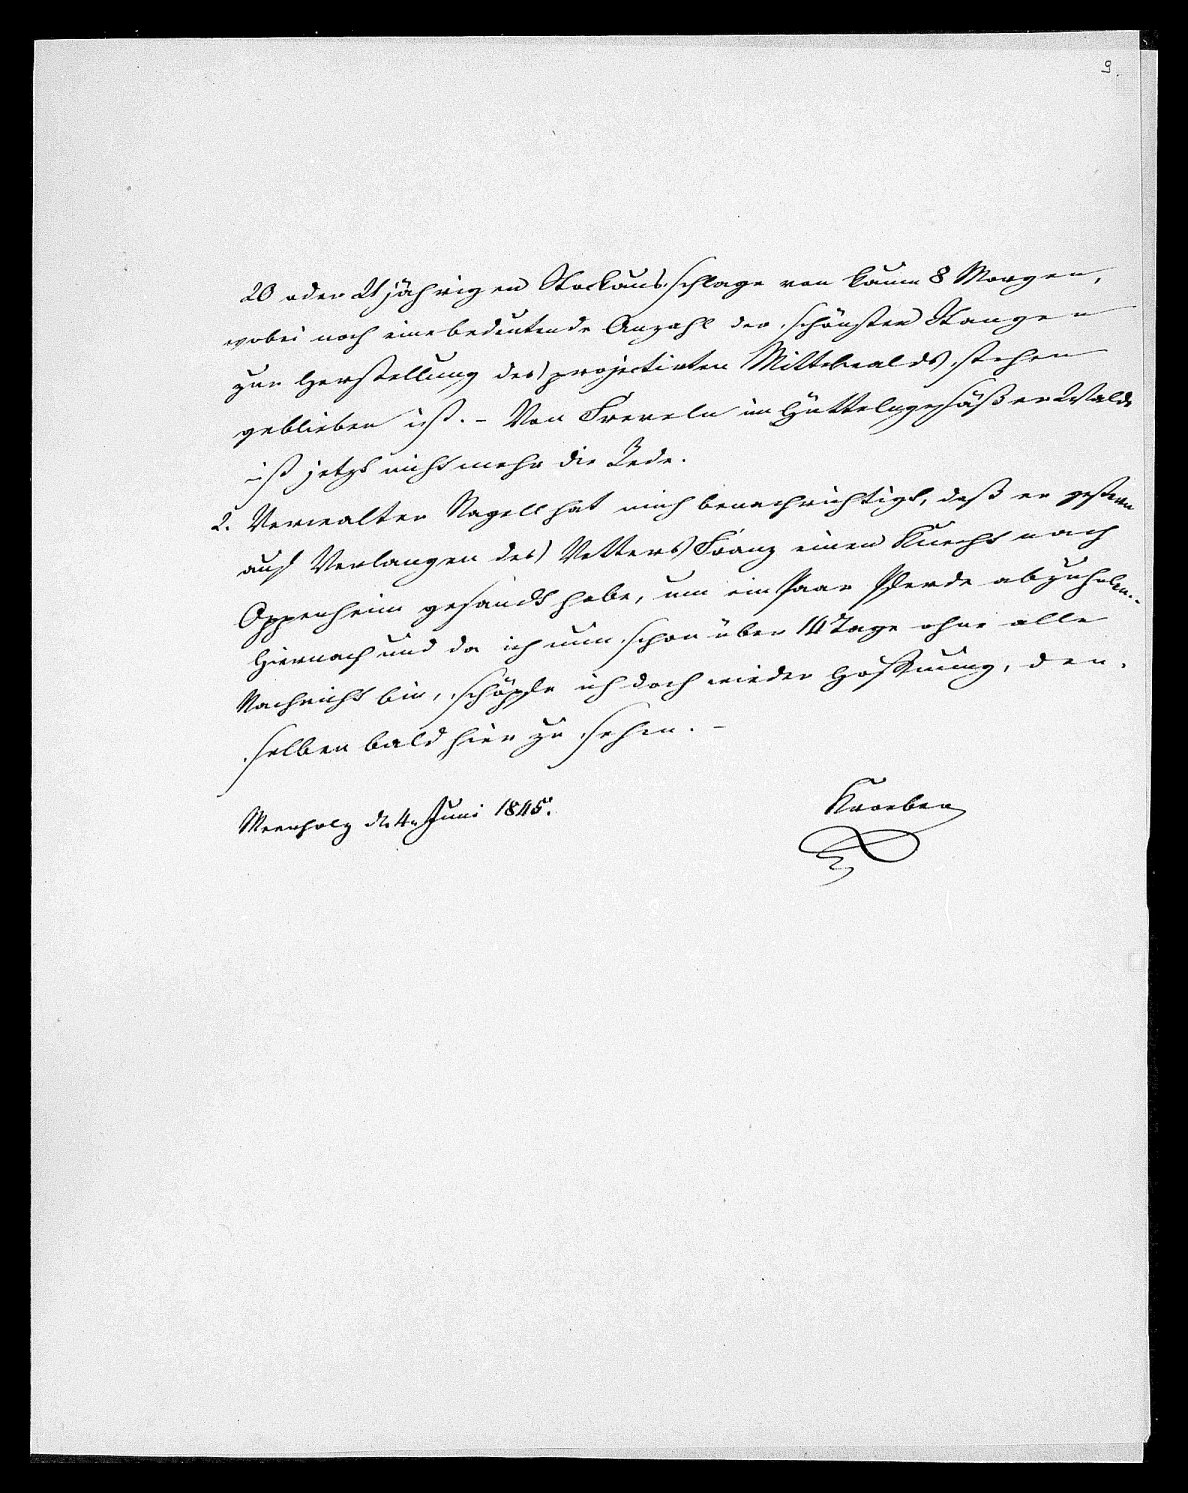 9.
20 oder 21jährigen Stockausschlage von kaum 8 Morgen,
wobei noch eine bedeutende Anzahl der schönsten Stangen
zur Herstellung des projectirten Mittelwalds stehen
geblieben ist. - Von Freveln im Hüttelngesäßer Walde
ist jetzt nicht mehr die Rede.
2. Verwalter Nagell hat mich benachrichtigt, daß er gestern
auf Verlangen des Vetters Franz einen Knecht nach
Oppenheim gesandt habe, um ein Paar Pferde abzuholen.-
Hiernach und da ich nun schon über 14 Tage ohne alle
Nachricht bin, schöpfe ich doch wieder Hoffnung, den-
selben bald hier zu sehen. -
Meerholz d. 4. Juni 1845.
Kroeber